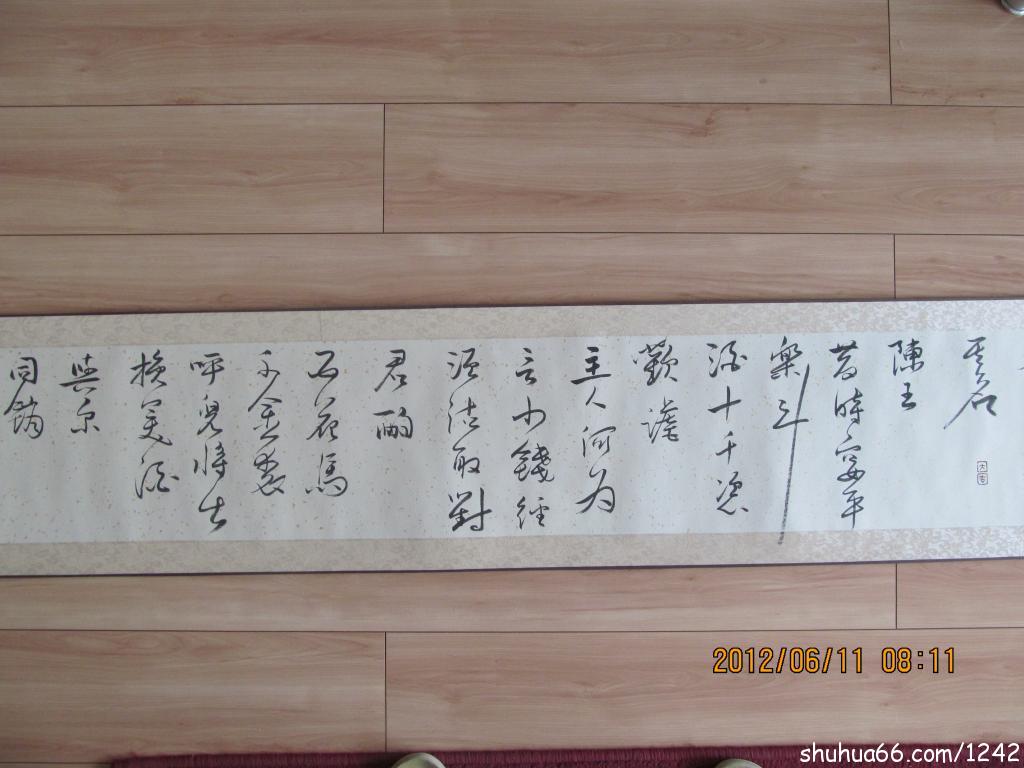 其名
陳王
昔時宴平
樂斗
酒十千恣
歡謔
主人何为
言少錢經
須沽取對
君酌
五花馬
千金裘
呼兒將出
換美酒
與尔
同銷
2012/06/11 08:11
shuhua66.com/1242